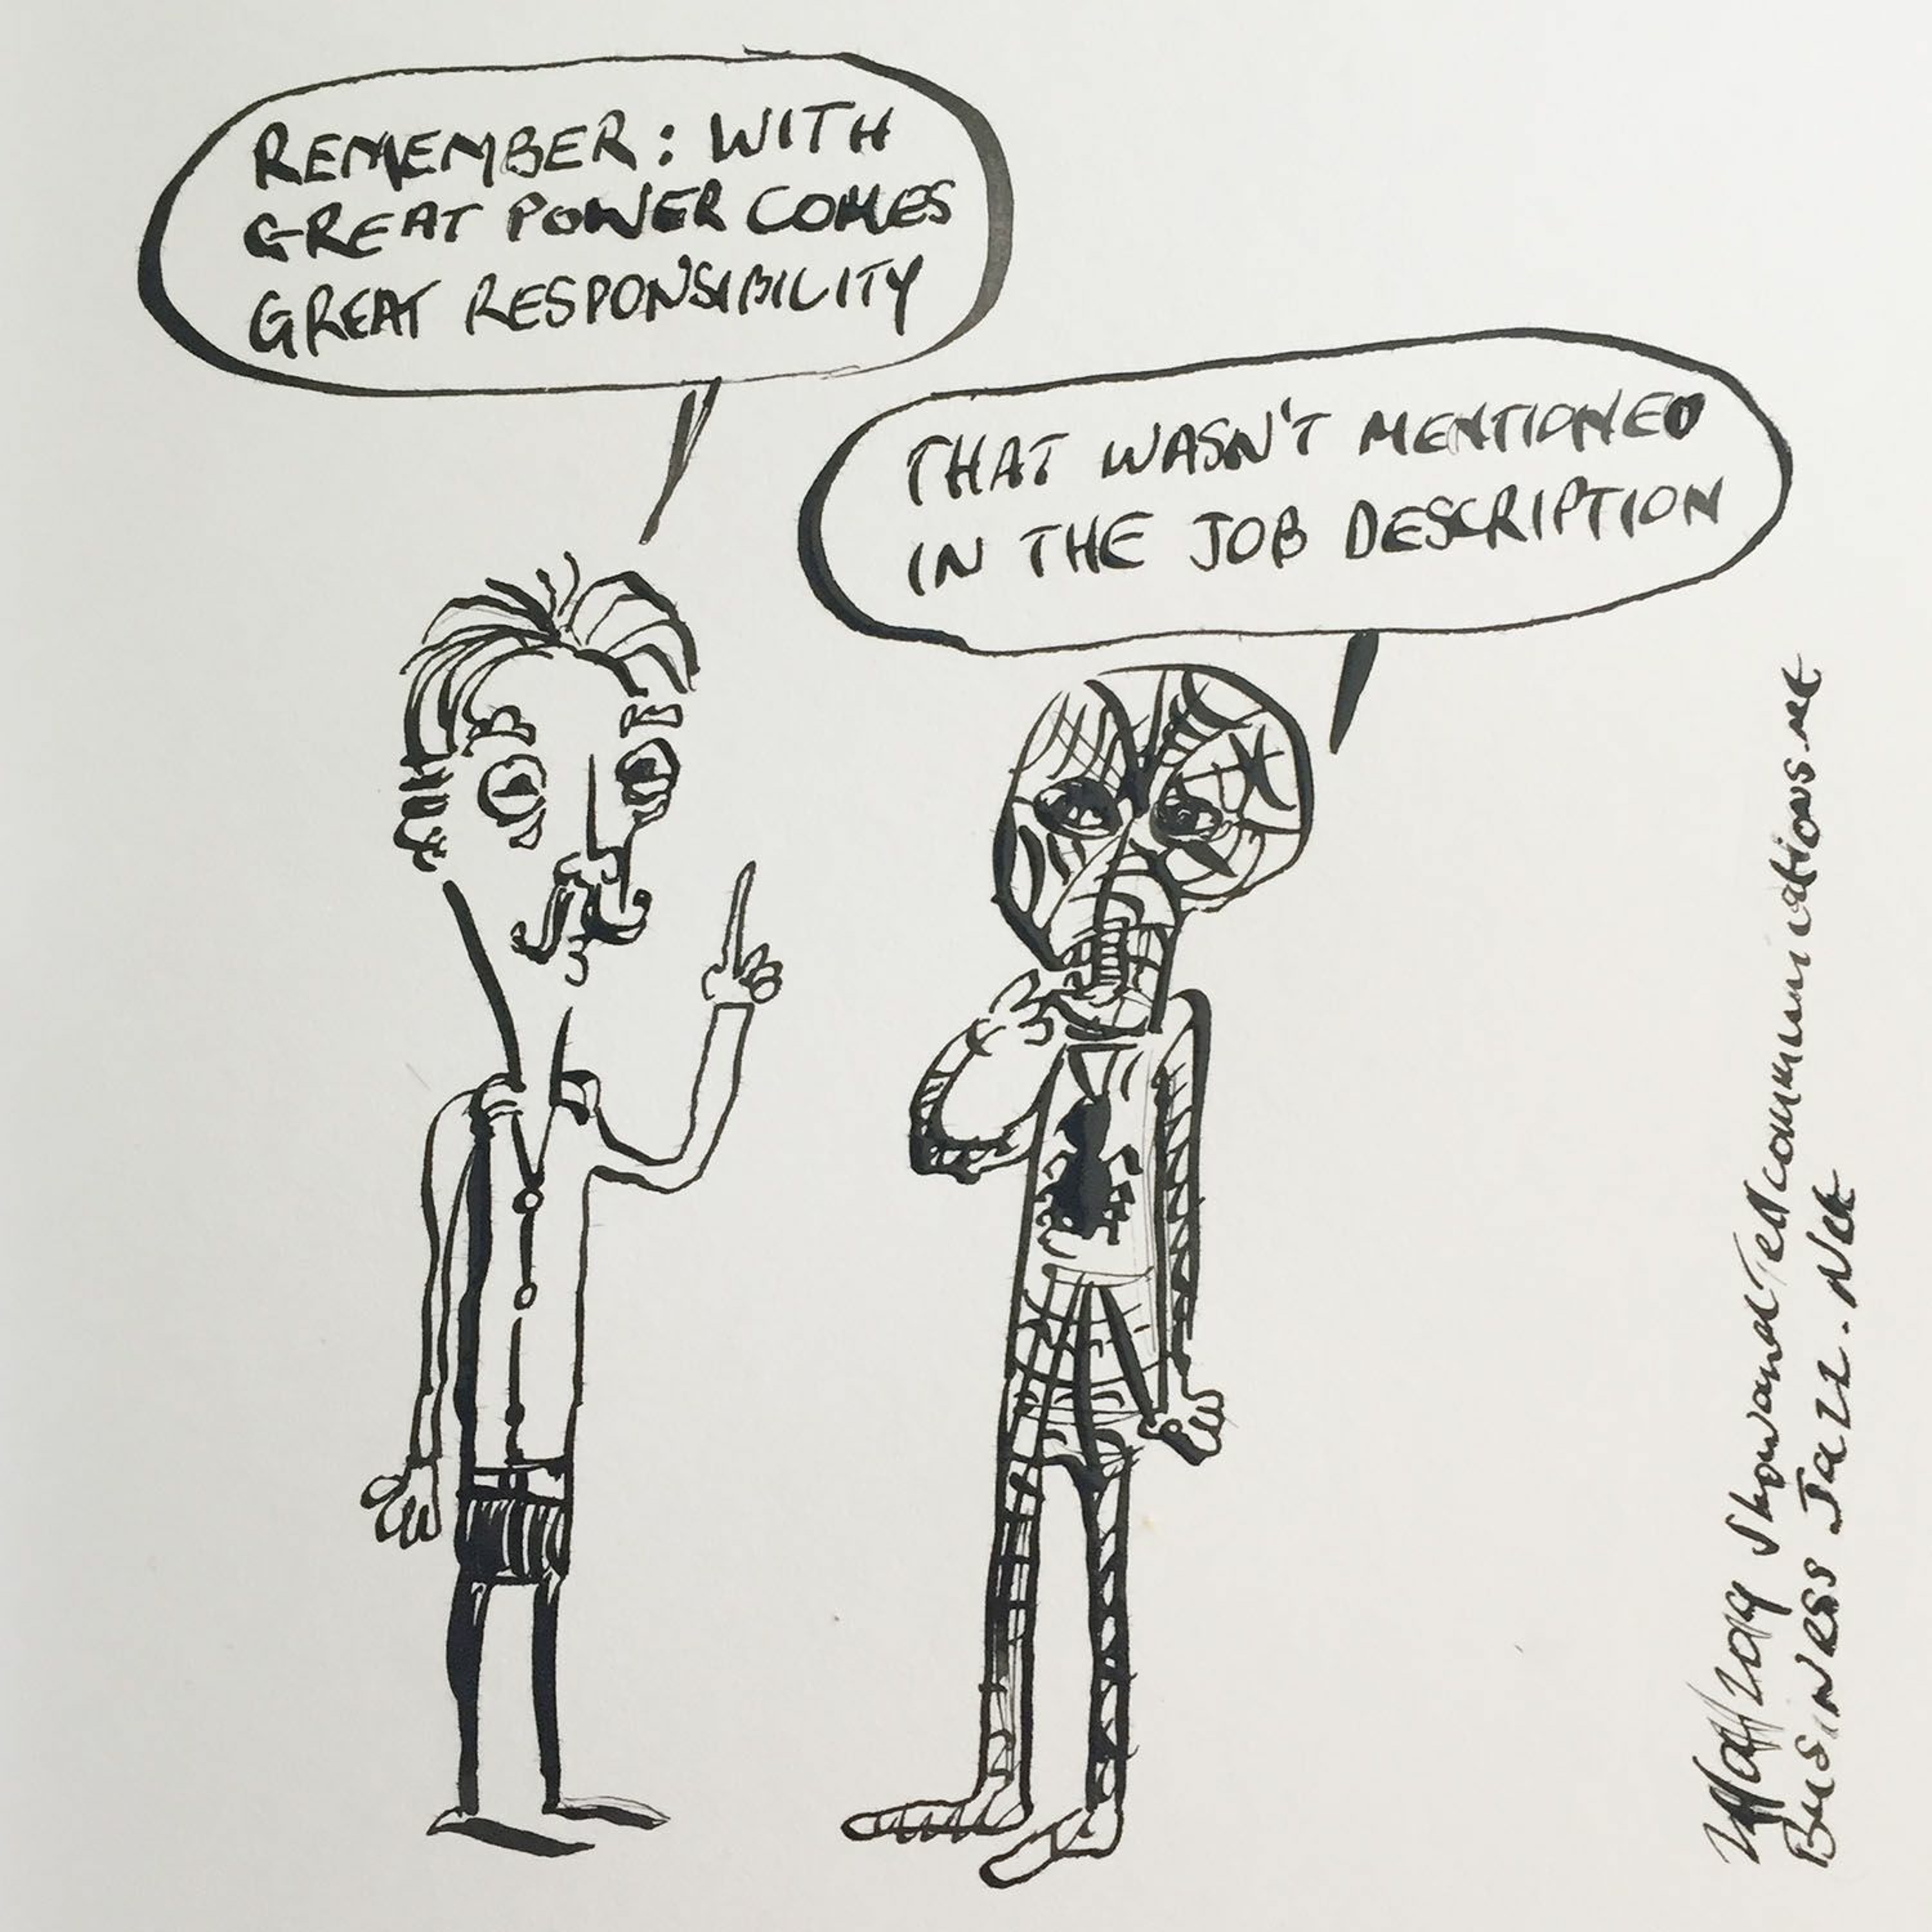 REMEMBER: WITH
GREAT POWER COMES
GREAT RESPONSIBILITY
THAT WASN'T MENTIONED
IN THE JOB DESCRIPTION
2019 ShowandTellcommunications.me
Business Jazz.Net